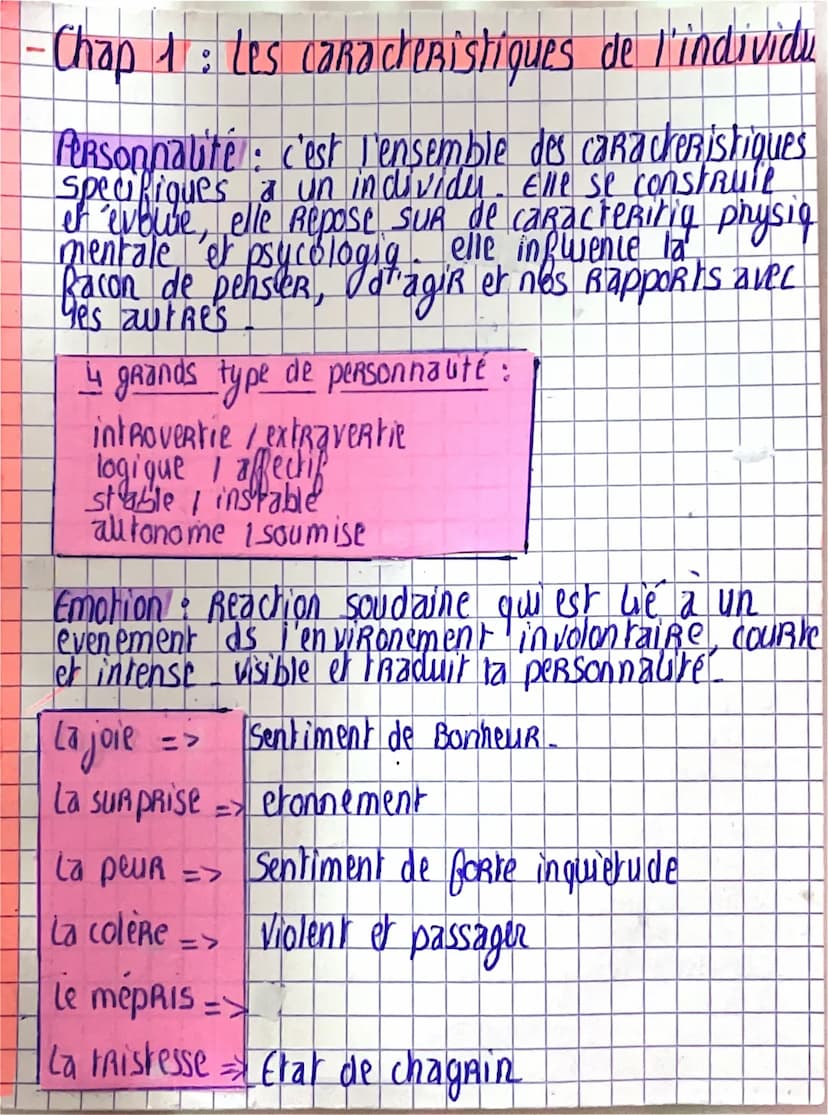 - Chap 1 : Les caracteristiques de l'individu
Personnalité : c'est l'ensemble des caracteristiques
specifiques a un individu. Elle se construie
et évolue, elle repose sur de caracteritiq physiq
mentale et psycologiq. elle influence la
facon de penser, d'agir et nos rapports avec
les autres.
4 grands type de personnalité :
introvertie / extravertie
logique / affectif
stable / instable
autonome / soumise
Emotion : Reaction soudaine qui est lié à un
evenement ds l'environement involontaire, courte
et intense. visible et traduit la personnalité.
La joie => Sentiment de Bonheur.
La surprise => etonnement
La peur => Sentiment de forte inquietude
La colère => Violent et passager
Le mépris =>
La tristesse => Etat de chagrin